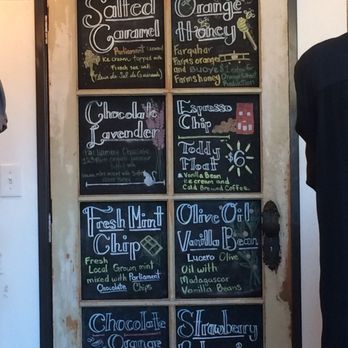 Salted
Caramel
Parliament
ice cream, topped with
French sea salt
Orange
Honey
Farquhar
Farms orange
and
Farms honey
Chocolate
Lavender
Parliament Chocolate
Espresso
Chip
Toddy
Float $6
Vanilla Bean
ice cream and
Cold Brewed Coffee.
Fresh Mint
Chip
Fresh
Local Grown mint
mixed with Parliament
Chocolate Chips
Olive Oil
Vanilla Bean
Lucero Olive
Oil with
Madagascar
Vanilla Beans
Chocolate
Orange
Strawberry